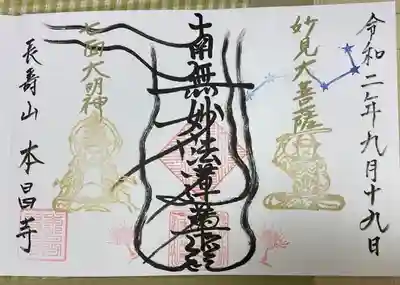 令和二年九月十九日
妙見大菩薩
南無妙法蓮華経
七面大明神
長寿山 本昌寺